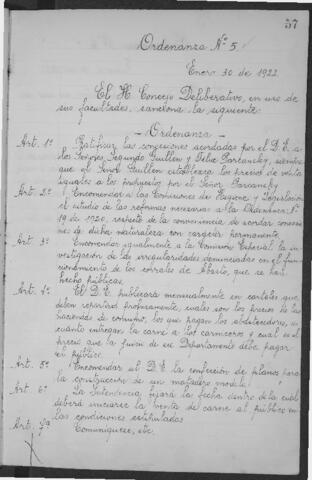 57
Ordenanza Nº 5
Enero 30 de 1922
El H. Concejo Deliberativo, en uso de
sus facultades, sanciona la siguiente:
- Ordenanza -
Art. 1º Ratificar las concesiones acordadas por el D. E. a
los señores, Segundo Guillen y Felix siempre
que el Señor Guillen establezca los precios de venta
iguales a los propuestos por el Señor
Art. 2º Encomendar a las Comisiones de Higiene y Legislación
el estudio de las reformas necesarias a la Ordenanza Nº
19 de 1920, respecto de la conveniencia de acordar concesio
nes de dicha naturaleza con carácter permanente.
Art. 3º Encomendar igualmente a la Comisión Especial la in-
vestigación de las irregularidades denunciadas en el fun
cionamiento de los corrales de Abasto, que se han
hecho públicas.
Art. 4º El D. E. publicará mensualmente en carteles que
deben repartirse profusamente, cuales son los precios de las
haciendas de consumo, los que pagan los abastecedores, en
cuanto entregan la carne a los carniceros y cual es el
precio que a juicio de su Departamento debe pagar
el público.
Art. 5º Encomendar al D. E. la confección de planos para
la construcción de un matadero modelo.
Art. 6º La Intendencia fijará la fecha dentro de la cual
deberá iniciarse la venta de carne al público en
las condiciones estipuladas.
Art. 7º Comuníquese, etc.